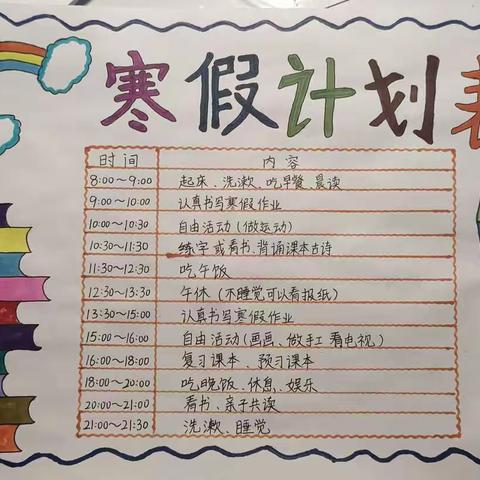 寒假计划表
时间 内容
8:00~9:00 起床、洗漱、吃早餐、晨读
9:00~10:00 认真书写寒假作业
10:00~10:30 自由活动(做运动)
10:30~11:30 练字或看书、背诵课本古诗
11:30~12:30 吃午饭
12:30~13:30 午休(不睡觉可以看报纸)
13:30~15:00 认真书写寒假作业
15:00~16:00 自由活动(画画、做手工 看电视)
16:00~18:00 复习课本、预习课本
18:00~20:00 吃晚饭、休息、娱乐
20:00~21:00 看书、亲子共读
21:00~21:30 洗漱、睡觉